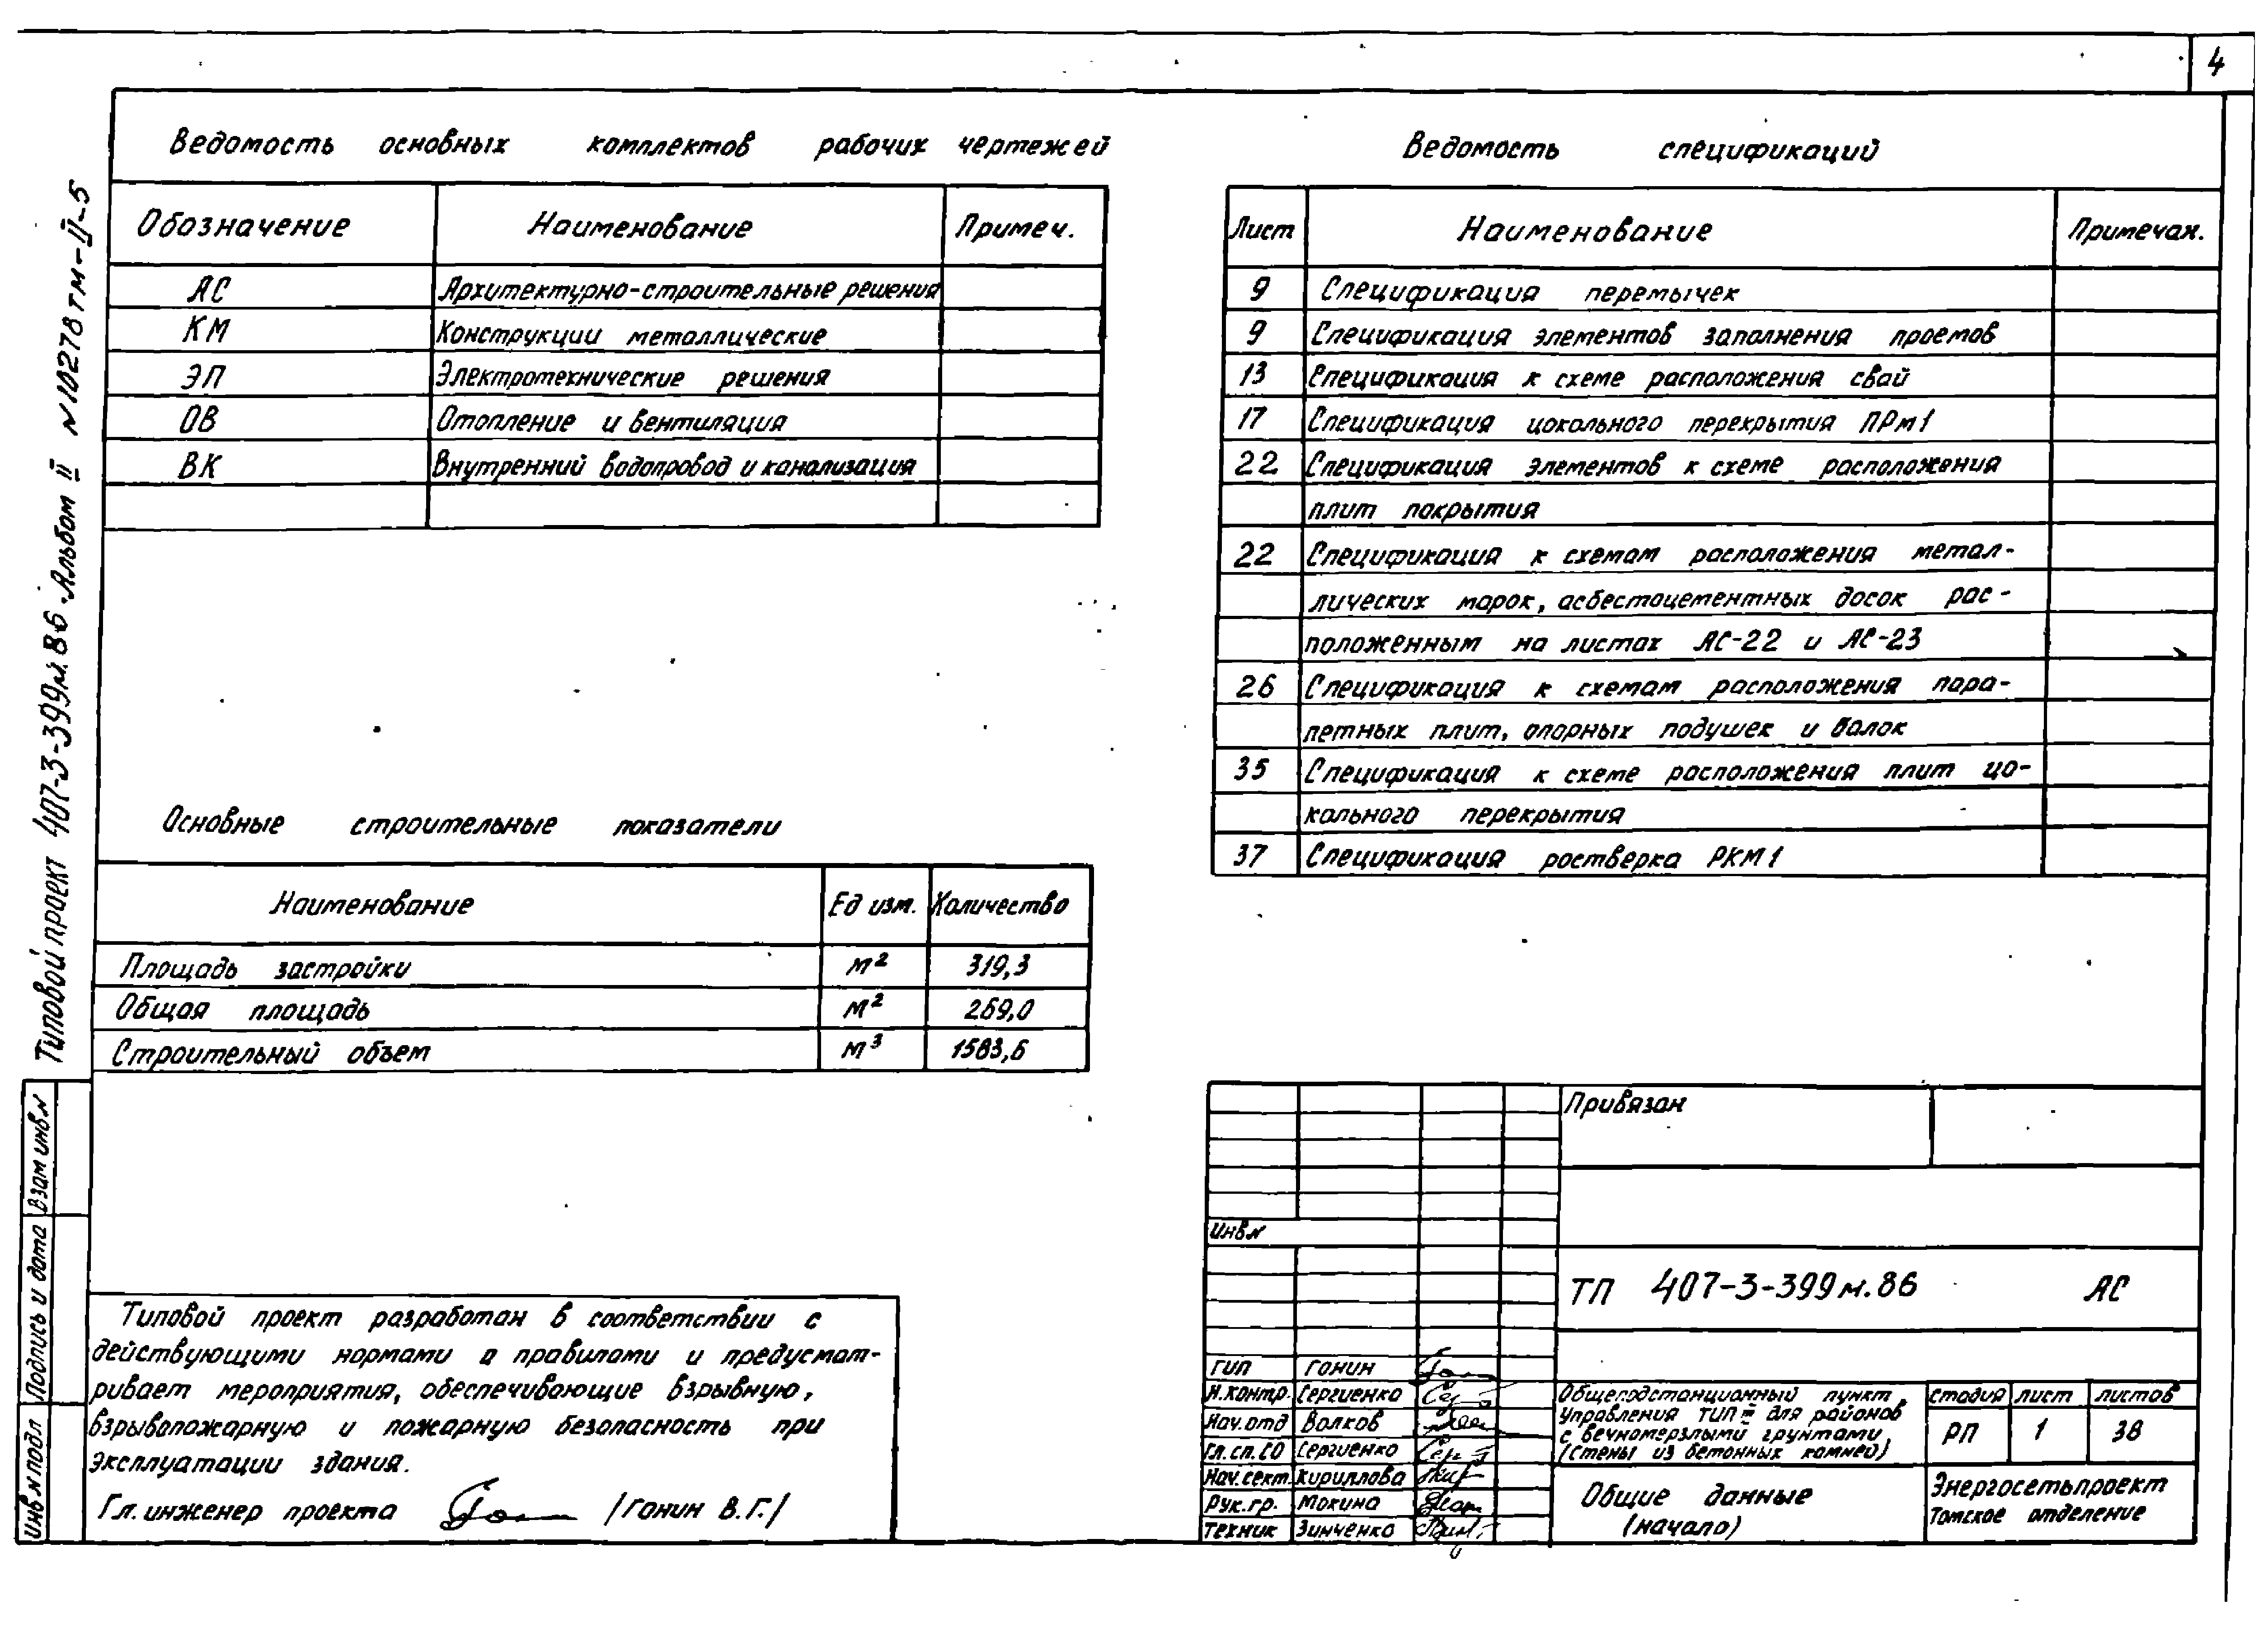 4
Типовой проект 407-3-399м.86. Альбом II N10278тм-II-5
Ведомость основных комплектов рабочих чертежей
Обозначение Наименование Примеч.
АС Архитектурно-строительные решения
КМ Конструкции металлические
ЭП Электротехнические решения
ОВ Отопление и вентиляция
ВК Внутренний водопровод и канализация
Основные строительные показатели
Наименование Ед изм. Количество
Площадь застройки м² 319,3
Общая площадь м² 269,0
Строительный объем м³ 1583,6
Типовой проект разработан в соответствии с
действующими нормами и правилами и предусмат-
ривает мероприятия, обеспечивающие взрывную,
взрывопожарную и пожарную безопасность при
эксплуатации здания.
Гл. инженер проекта /Гонин В.Г./
Взам инв N
Подпись и дата
Инв N подл
Ведомость спецификаций
Лист Наименование Примечан.
9 Спецификация перемычек
9 Спецификация элементов заполнения проемов
13 Спецификация к схеме расположения свай
17 Спецификация цокольного перекрытия ПРм1
22 Спецификация элементов к схеме расположения
плит покрытия
22 Спецификация к схемам расположения метал-
лических марок, асбестоцементных досок рас-
положенным на листах АС-22 и АС-23
26 Спецификация к схемам расположения пара-
петных плит, опорных подушек и балок
35 Спецификация к схеме расположения плит цо-
кольного перекрытия
37 Спецификация ростверка РКМ1
Привязан
Инв N
ТП 407-3-399м.86 АС
ГИП Гонин
Н.контр. Сергиенко
Нач.отд Волков
Гл.сп.СО Сергиенко
Нач.сект. Кириллова
Рук.гр. Мокина
Техник Зинченко
Общеподстанционный пункт
управления тип III для районов
с вечномерзлыми грунтами
(стены из бетонных камней)
стадия лист листов
РП 1 38
Общие данные
(начало)
Энергосетьпроект
Томское отделение